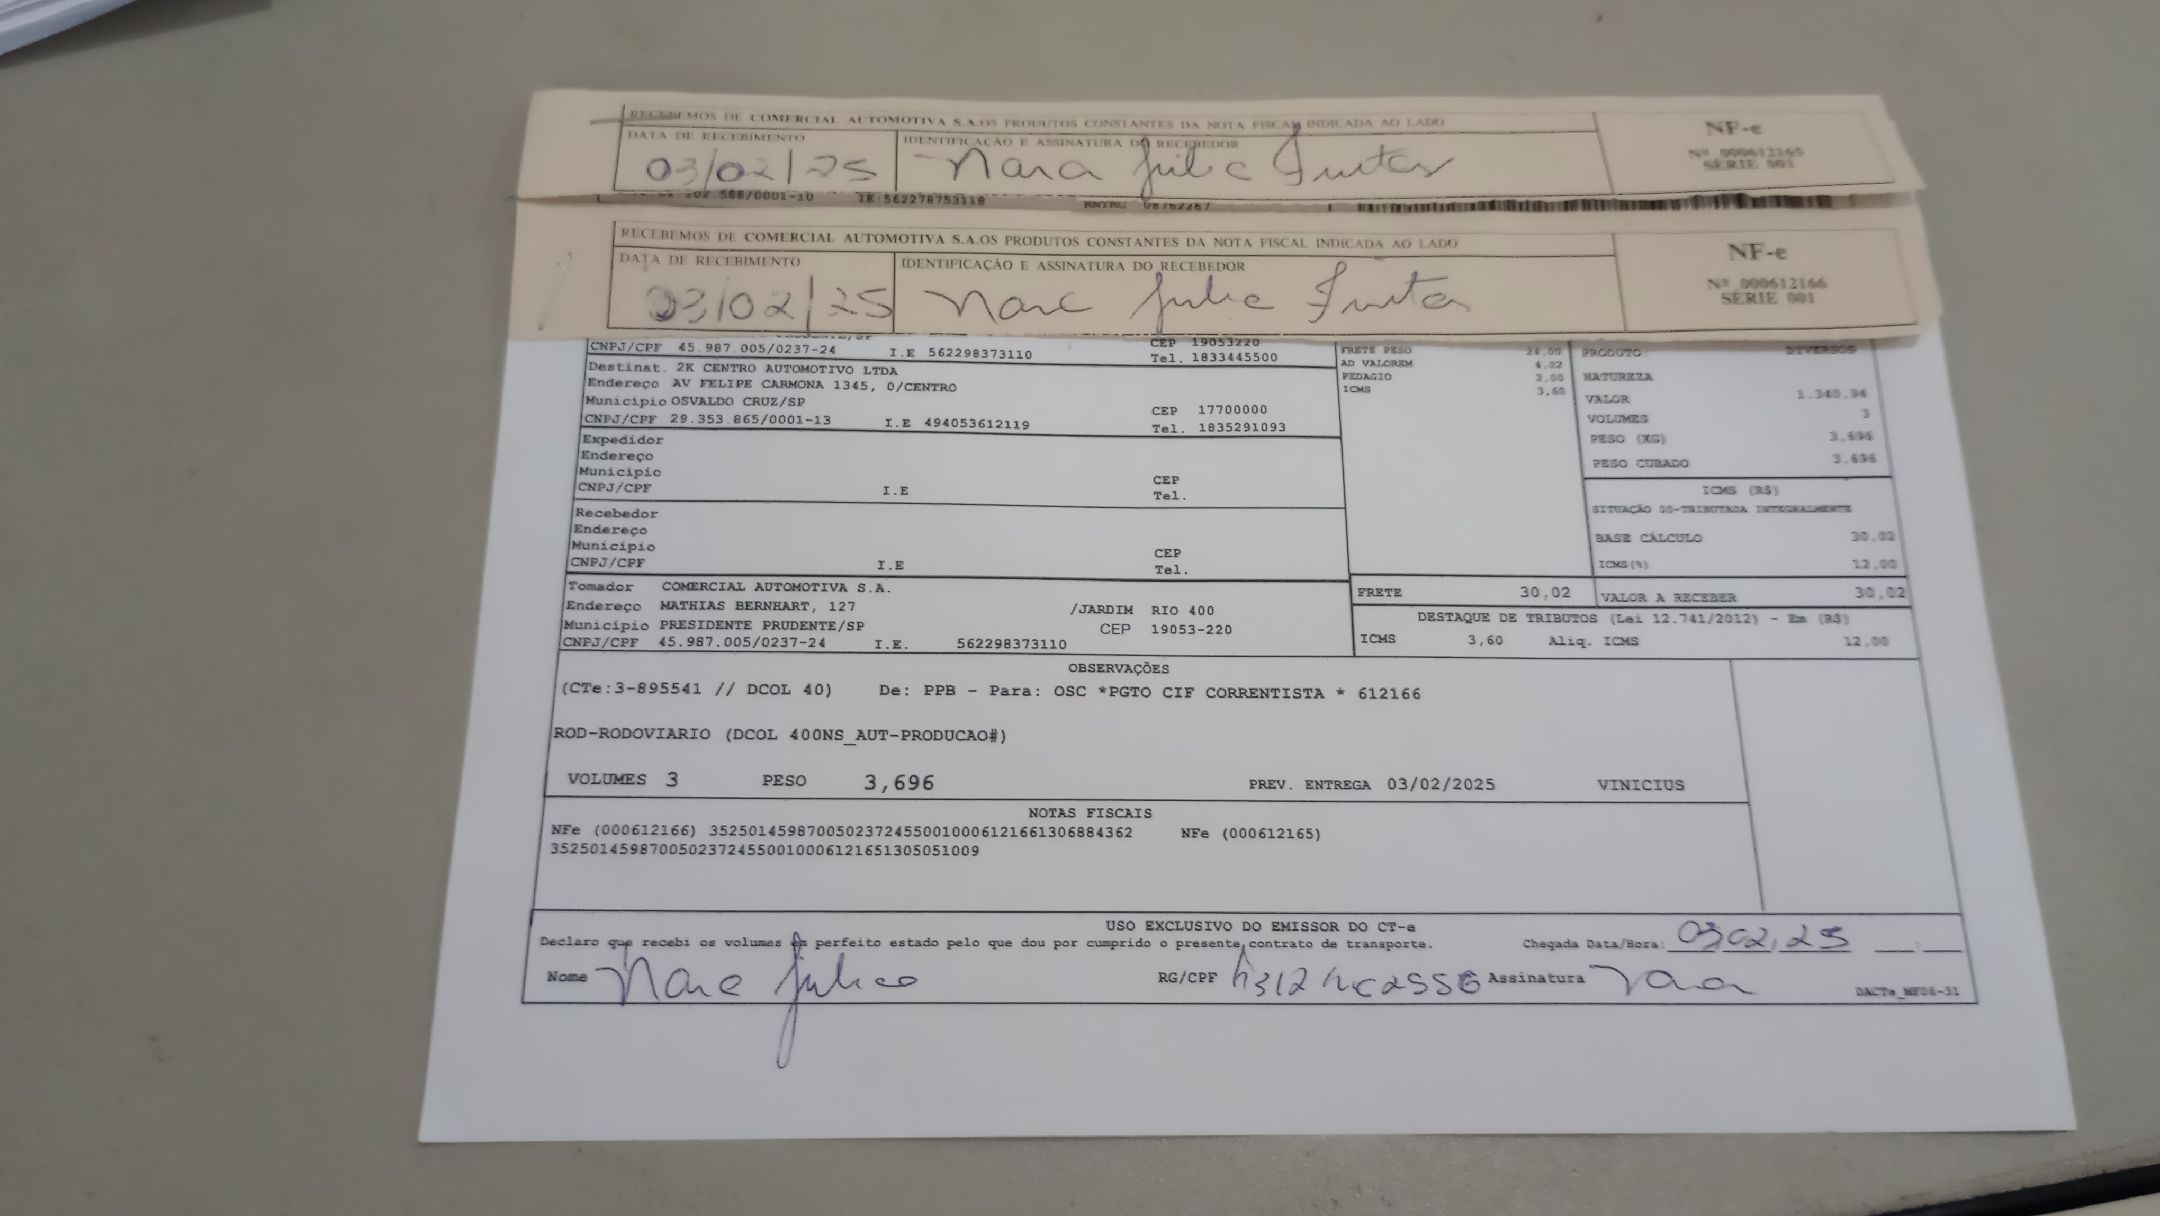 RECEBEMOS DE COMERCIAL AUTOMOTIVA S.A.OS PRODUTOS CONSTANTES DA NOTA FISCAL INDICADA AO LADO
NF-e
DATA DE RECEBIMENTO IDENTIFICAÇÃO E ASSINATURA DO RECEBEDOR
Nº 000612165
03/02/25 Nara
SÉRIE 001
.566/0001-10 IE:562278753118
RECEBEMOS DE COMERCIAL AUTOMOTIVA S.A.OS PRODUTOS CONSTANTES DA NOTA FISCAL INDICADA AO LADO
NF-e
DATA DE RECEBIMENTO IDENTIFICAÇÃO E ASSINATURA DO RECEBEDOR
Nº 000612166
03/02/25
SÉRIE 001
CNPJ/CPF 45.987.005/0237-24 I.E 562298373110 CEP 19053220
Tel. 1833445500
Destinat. 2K CENTRO AUTOMOTIVO LTDA
Endereço AV FELIPE CARMONA 1345, 0/CENTRO
Municipio OSVALDO CRUZ/SP CEP 17700000
CNPJ/CPF 29.353.865/0001-13 I.E 494053612119 Tel. 1835291093
Expedidor
Endereço
Municipio CEP
CNPJ/CPF I.E Tel.
Recebedor
Endereço
Municipio CEP
CNPJ/CPF I.E Tel.
Tomador COMERCIAL AUTOMOTIVA S.A.
Endereço MATHIAS BERNHART, 127 /JARDIM RIO 400
Municipio PRESIDENTE PRUDENTE/SP CEP 19053-220
CNPJ/CPF 45.987.005/0237-24 I.E. 562298373110
FRETE PESO 24,00
AD VALOREM 4,02
PEDAGIO 2,00
ICMS 3,60
PRODUTO: DIVERSOS
NATUREZA
VALOR 1.340,94
VOLUMES 3
PESO (KG) 3,696
PESO CUBADO 3,696
ICMS (R$)
SITUAÇÃO 00-TRIBUTADA INTEGRALMENTE
BASE CÁLCULO 30,02
ICMS(%) 12,00
FRETE 30,02 VALOR A RECEBER 30,02
DESTAQUE DE TRIBUTOS (Lei 12.741/2012) - Em (R$)
ICMS 3,60 Aliq. ICMS 12,00
OBSERVAÇÕES
(CTe:3-895541 // DCOL 40) De: PPB - Para: OSC *PGTO CIF CORRENTISTA * 612166
ROD-RODOVIARIO (DCOL 400NS_AUT-PRODUCAO#)
VOLUMES 3 PESO 3,696 PREV. ENTREGA 03/02/2025 VINICIUS
NOTAS FISCAIS
NFe (000612166) 35250145987005023724550010006121661306884362 NFe (000612165)
35250145987005023724550010006121651305051009
USO EXCLUSIVO DO EMISSOR DO CT-e
Declaro que recebi os volumes em perfeito estado pelo que dou por cumprido o presente contrato de transporte. Chegada Data/Hora: 03,02,25
Nome RG/CPF Assinatura Nara
DACTe_MF06-31